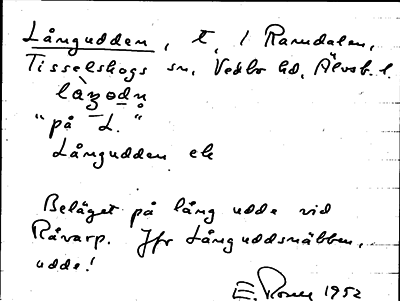 Långudden, t, i Ramdalen,
Tisselskogs sn, Vedbo hd, Älvsb. l.
"på L."
Långudden ek
Beläget på lång udde vid
Råvarp. Jfr Långuddsnäbben,
udde!
E. 1952